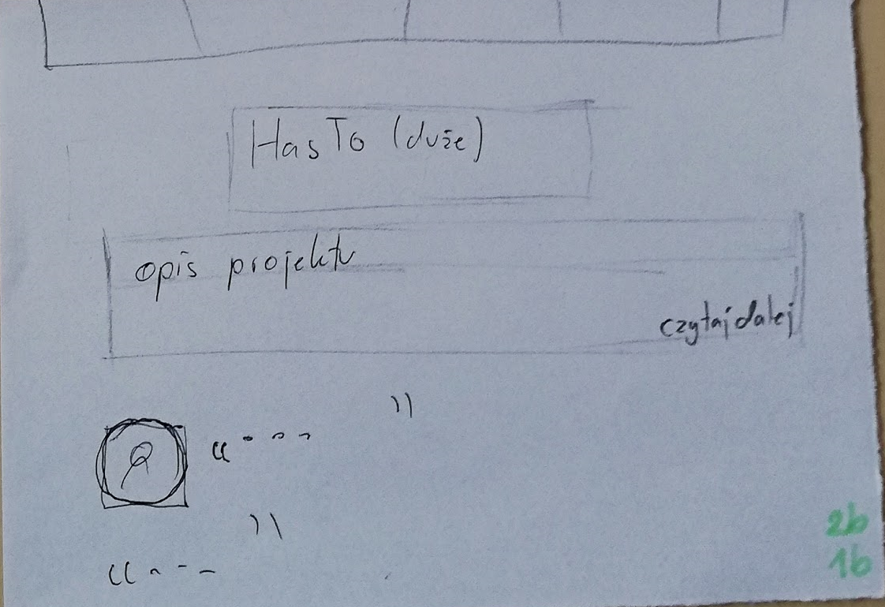 HasTo (duże)
opis projektu
czytaj dalej
))
“ - - -
))
“ - - -
2b
1b